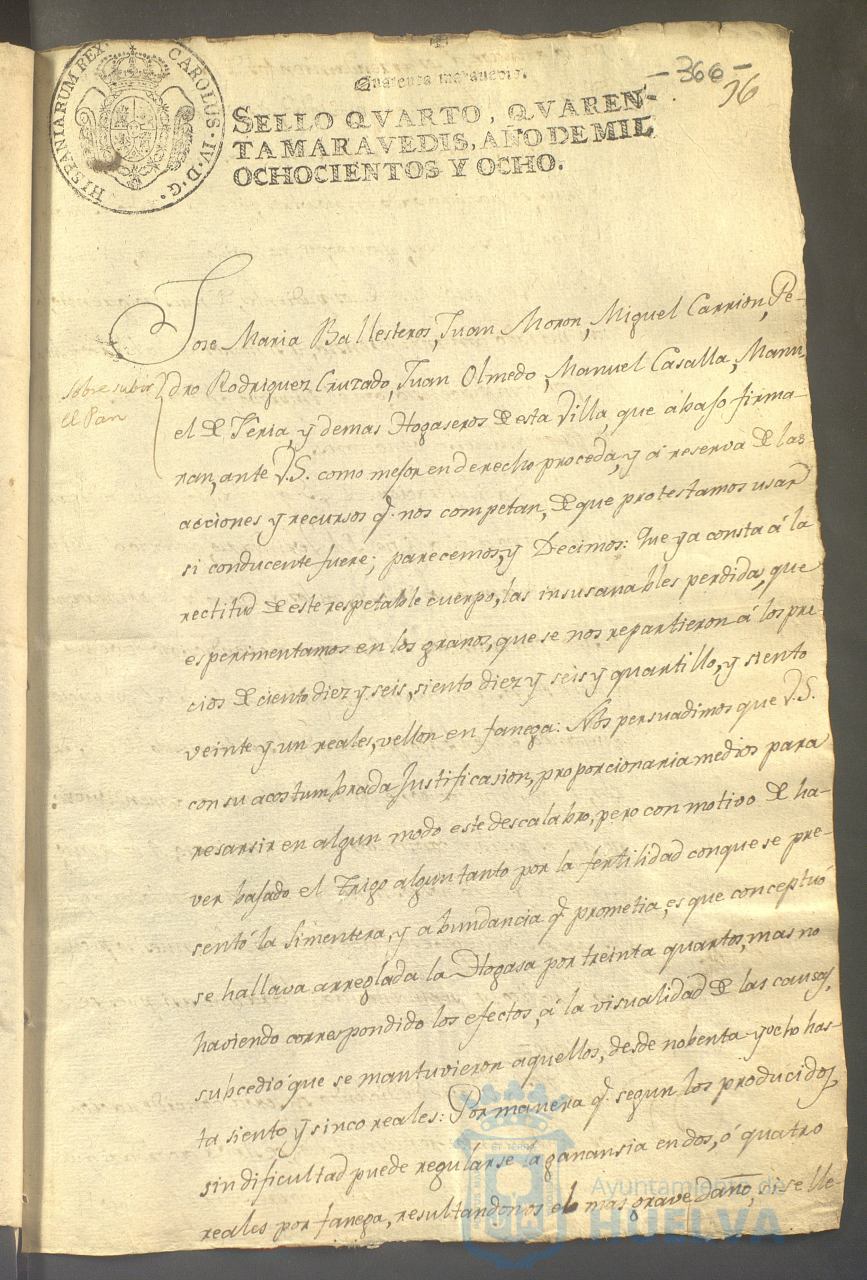 HISPANIARUM REX. CAROLUS. IV. D. G.
Quarenta maravedis.
SELLO QVARTO, QVAREN-
TA MARAVEDIS, AÑO DE MIL
OCHOCIENTOS Y OCHO.
-366-
96
Jose Maria Ballesteros, Juan Moron, Miguel Carrion, Pe-
dro Rodriguez Cruzado, Juan Olmedo, Manuel Casalla, Manu
el de Feria, y demas Hogaseros de esta Villa, que abajo firma-
ran, ante V.S. como mejor en derecho proceda, y á reserva de las
acciones y recursos q.e nos competan, de que protestamos usar
si conducente fuere; parecemos, y Decimos: Que ya consta á la
rectitud de este respetable cuerpo, las insusanables perdidas, que
esperimentamos en los granos, que se nos repartieron á los pre
cios de ciento diez y seis, siento diez y seis y quartillo, y siento
veinte y un reales, vellon en fanega: Nos persuadimos que V.S.
con su acostumbrada Justificasion, proporcionaria medios para
resarsir en algun modo este descalabro, pero con motivo de ha-
ver bajado el Trigo algun tanto por la fertilidad con que se pre-
sentó la Simentera, y abundancia q.e prometia, es que conceptuó
se hallava arreglada la Hogasa por treinta quartos, mas no
haviendo correspondido los efectos, á la visualidad de las causas,
subcedió que se mantuvieron aquellos, desde nobenta y ocho has-
ta siento y sinco reales: Por manera q.e segun los producidos
sin dificultad puede regularse la ganansia en dos, ó quatro
reales por fanega, resultandonos el mas grave daño, si se lle
Sobre subir
el Pan
Ayuntamiento de
HUELVA